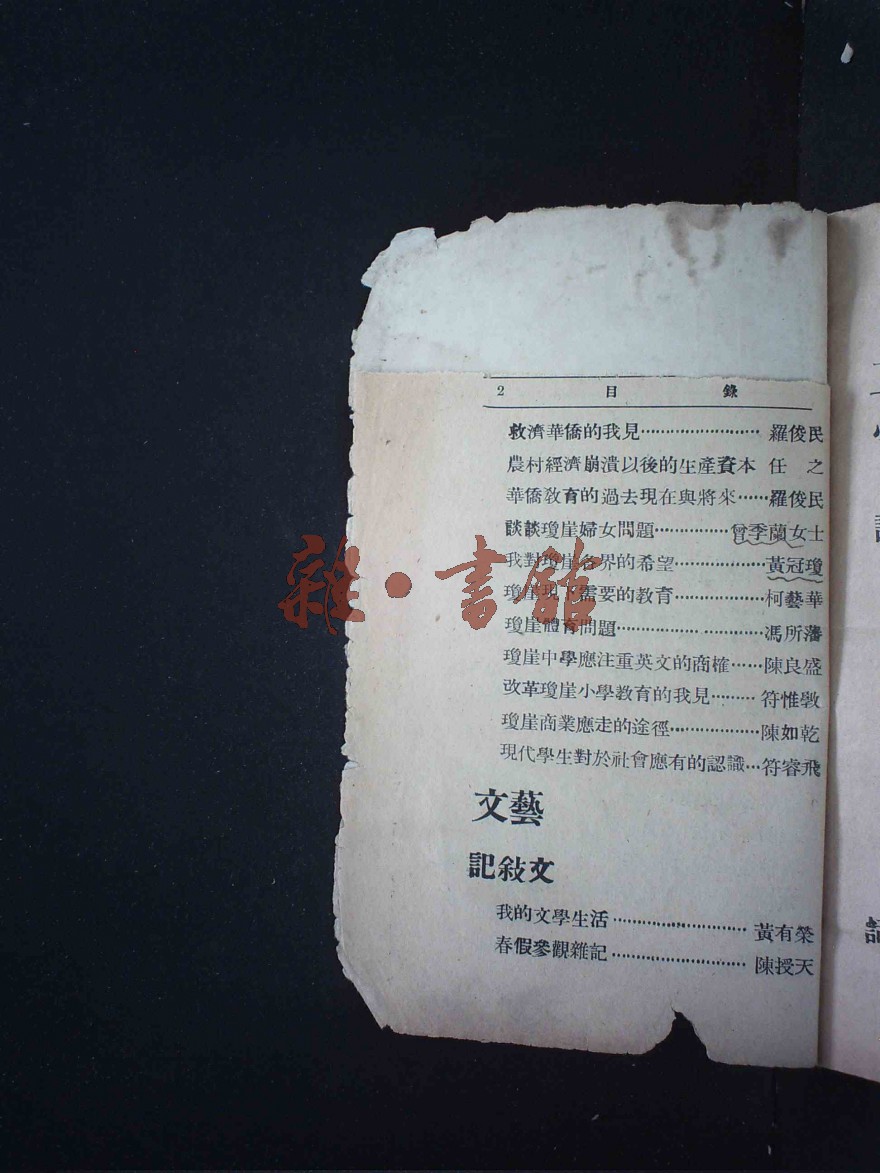 2 目 錄
救濟華僑的我見……………………羅俊民
農村經濟崩潰以後的生產資本 任 之
華僑敎育的過去現在與將來……羅俊民
談談瓊崖婦女問題……………曾季蘭女士
我對瓊崖各界的希望………………黃冠瓊
瓊崖現下需要的教育………………柯藝華
瓊崖體育問題…………… …………馮所藩
瓊崖中學應注重英文的商榷……陳良盛
改革瓊崖小學教育的我見………符惟斆
瓊崖商業應走的途徑………………陳如乾
現代學生對於社會應有的認識…符睿飛
文藝
記敍文
我的文學生活………………………黃有榮
春假參觀雜記………………………陳授天
雜·書館